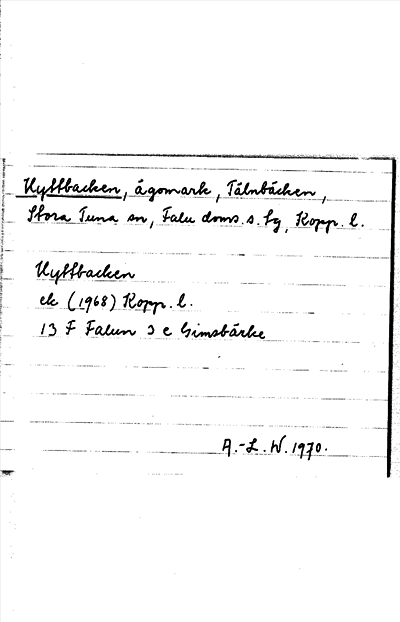 Hyttbacken, ägomark, Tälnbäcken,
Stora Tuna sn, Falu doms. s. tg, Kopp. l.
Hyttbacken
ek (1968) Kopp. l.
13 F Falun 3 c Gimsbärke
A.-L. W. 1970.